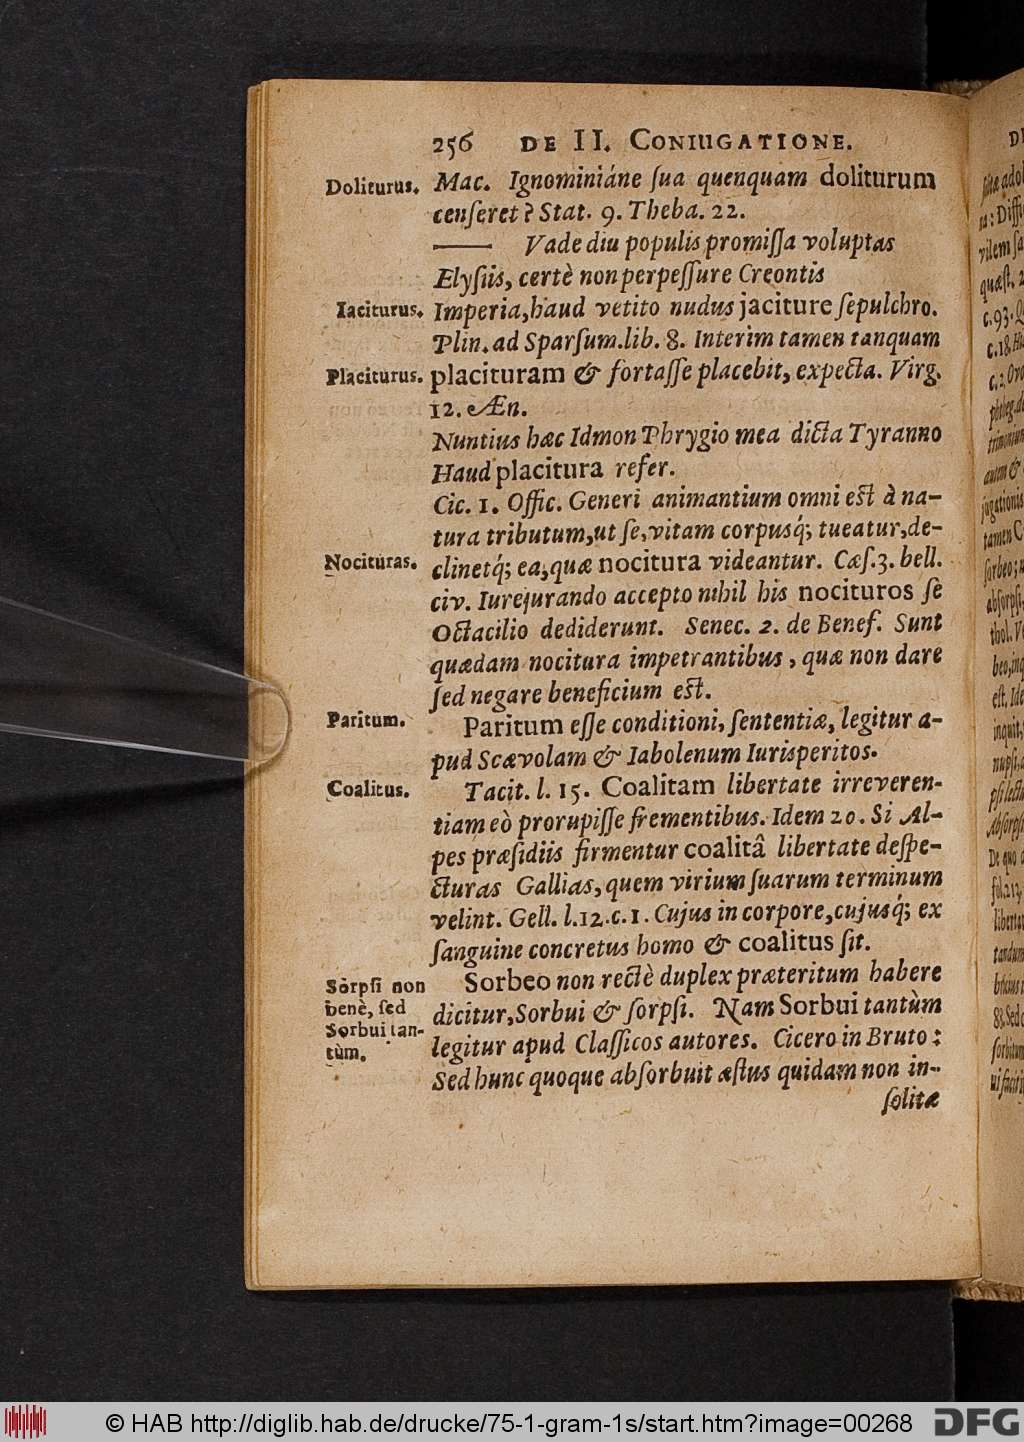 256 DE II. CONIUGATIONE.
Doliturus. Mac. Ignominiáne ſua quenquam doliturum
cenſeret? Stat. 9. Theba. 22.
—— Vade diu populis promiſſa voluptas
Elyſiis, certè non perpeſſure Creontis
Iaciturus. Imperia, haud vetito nudus jaciture ſepulchro.
Plin. ad Sparſum. lib. 8. Interim tamen tanquam
Placiturus. placituram & fortaſſe placebit, expecta. Virg.
12. Æn.
Nuntius hæc Idmon Phrygio mea dicta Tyranno
Haud placitura refer.
Cic. 1. Offic. Generi animantium omni est à na-
tura tributum, ut ſe, vitam corpusq́; tueatur, de-
Nocituras. clinetq́; ea, quæ nocitura videantur. Cæſ. 3. bell.
civ. Iurejurando accepto nihil his nocituros ſe
Octacilio dediderunt. Senec. 2. de Benef. Sunt
quædam nocitura impetrantibus, quæ non dare
ſed negare beneficium est.
Paritum. Paritum eſſe conditioni, ſententiæ, legitur a-
pud Scævolam & Iabolenum Iurisperitos.
Coalitus. Tacit. l. 15. Coalitam libertate irreveren-
tiam eò prorupiſſe frementibus. Idem 20. Si Al-
pes præſidiis firmentur coalitâ libertate deſpe-
cturas Gallias, quem virium ſuarum terminum
velint. Gell. l. 12. c. 1. Cujus in corpore, cujusq́; ex
ſanguine concretus homo & coalitus ſit.
Sorpſi non Sorbeo non rectè duplex præteritum habere
benè, ſed dicitur, Sorbui & ſorpſi. Nam Sorbui tantùm
Sorbui tan- legitur apud Claſſicos autores. Cicero in Bruto:
tùm. Sed hunc quoque abſorbuit æſtus quidam non in-
ſolitæ
© HAB http://diglib.hab.de/drucke/75-1-gram-1s/start.htm?image=00268 DFG